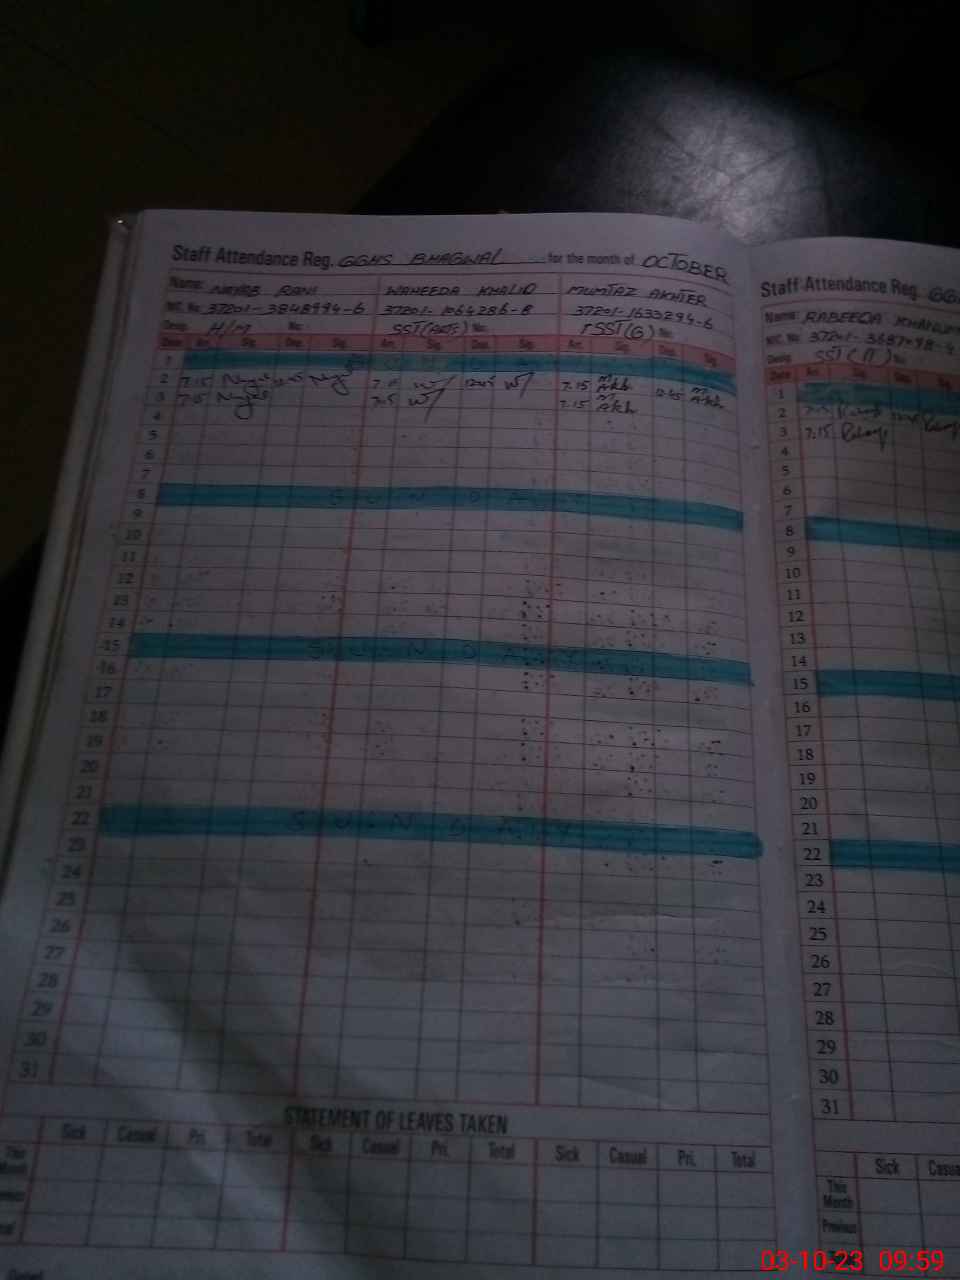 Staff Attendance Reg. GGHS BHAGWAL for the month of OCTOBER
Name: NAYAB RANI WAHEEDA KHALID MUMTAZ AKHTER
N.I.C. No. 37201-3848994-6 37201-1064286-8 37201-1633294-6
Desig. H/M No: SST(ARTS) No: SST(G) No:
Date Arr. Sig. Dep. Sig. Arr. Sig. Dep. Sig. Arr. Sig. Dep. Sig.
1
2 7.15 12.45 7.15 12.45 7.15 M Akh 12.45 M Akh
3 7.15 7.15 7.15 M Akh
4
5
6
7
8 SUNDAY
9
10
11
12
13
14
15 SUNDAY
16
17
18
19
20
21
22 SUNDAY
23
24
25
26
27
28
29
30
31
STATEMENT OF LEAVES TAKEN
Sick Casual Pri. Total Sick Casual Pri. Total Sick Casual Pri. Total
This
Month
Staff Attendance Reg. GG
Name: RABEEDA KHANUM
N.I.C. No. 37201-
Desig. SST(IT) No:
Date Arr. Sig. Dep. Sig.
1
2
3 7.15
4
5
6
7
8
9
10
11
12
13
14
15
16
17
18
19
20
21
22
23
24
25
26
27
28
29
30
31
Sick
This
Month
Previous
03-10-23 09:59